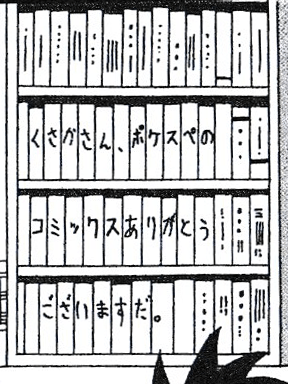 くさかさん、ポケスペの
コミックスありがとう
ございますだ。